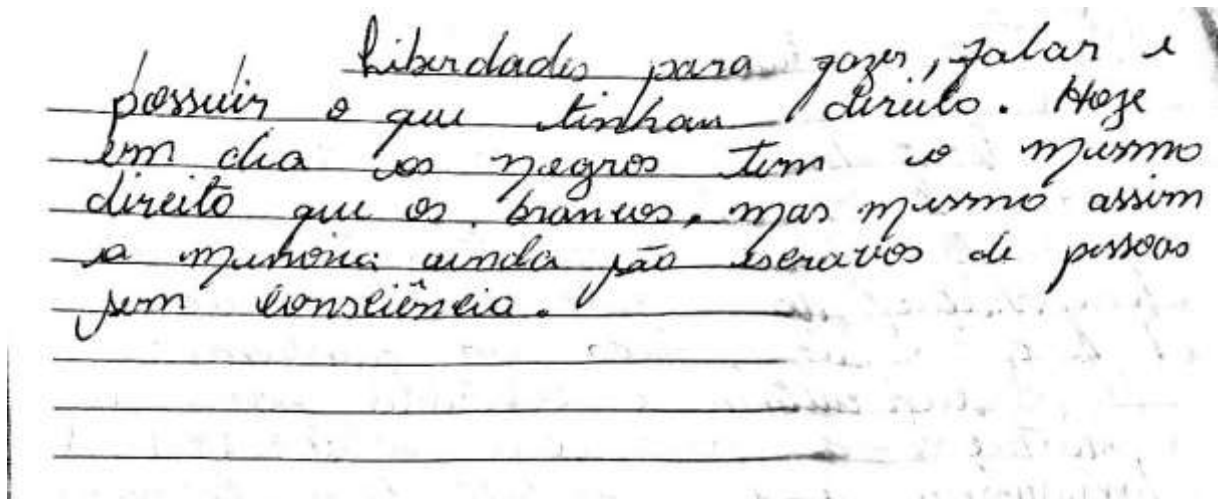 Liberdades para fazer, falar e
possuir o que tinham direito. Hoje
em dia os negros tem o mesmo
direito que os brancos, mas mesmo assim
a menoria ainda são escravos de pessoas
sem consciência.